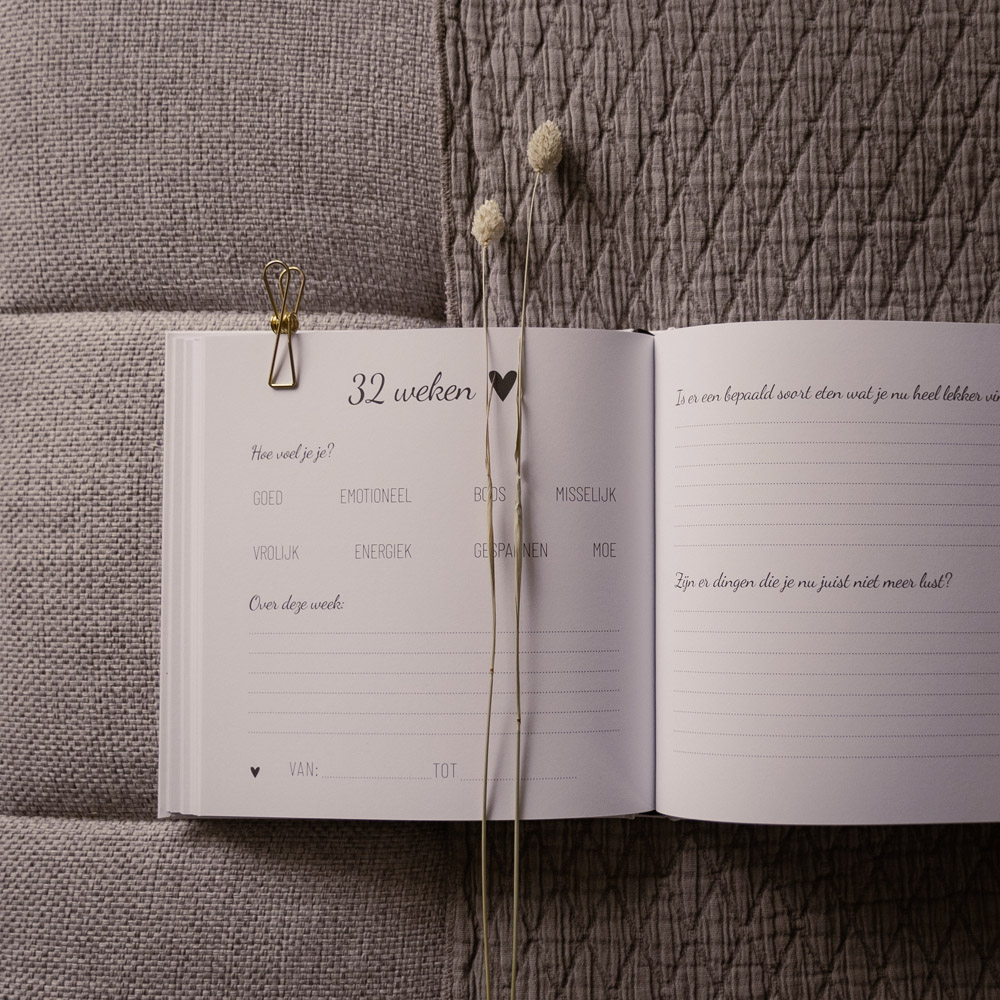 32 weken
Hoe voel je je?
GOED EMOTIONEEL BOOS MISSELIJK
VROLIJK ENERGIEK GESPANNEN MOE
Over deze week:
VAN: TOT
Is er een bepaald soort eten wat je nu heel lekker
Zijn er dingen die je nu juist niet meer lust?